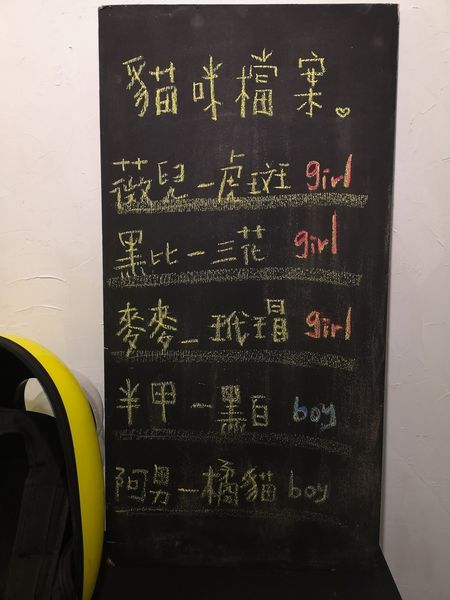 貓咪檔案♡
薇兒-虎斑 girl
黑比-三花 girl
麥麥-玳瑁 girl
半甲-黑白 boy
阿男-橘貓 boy